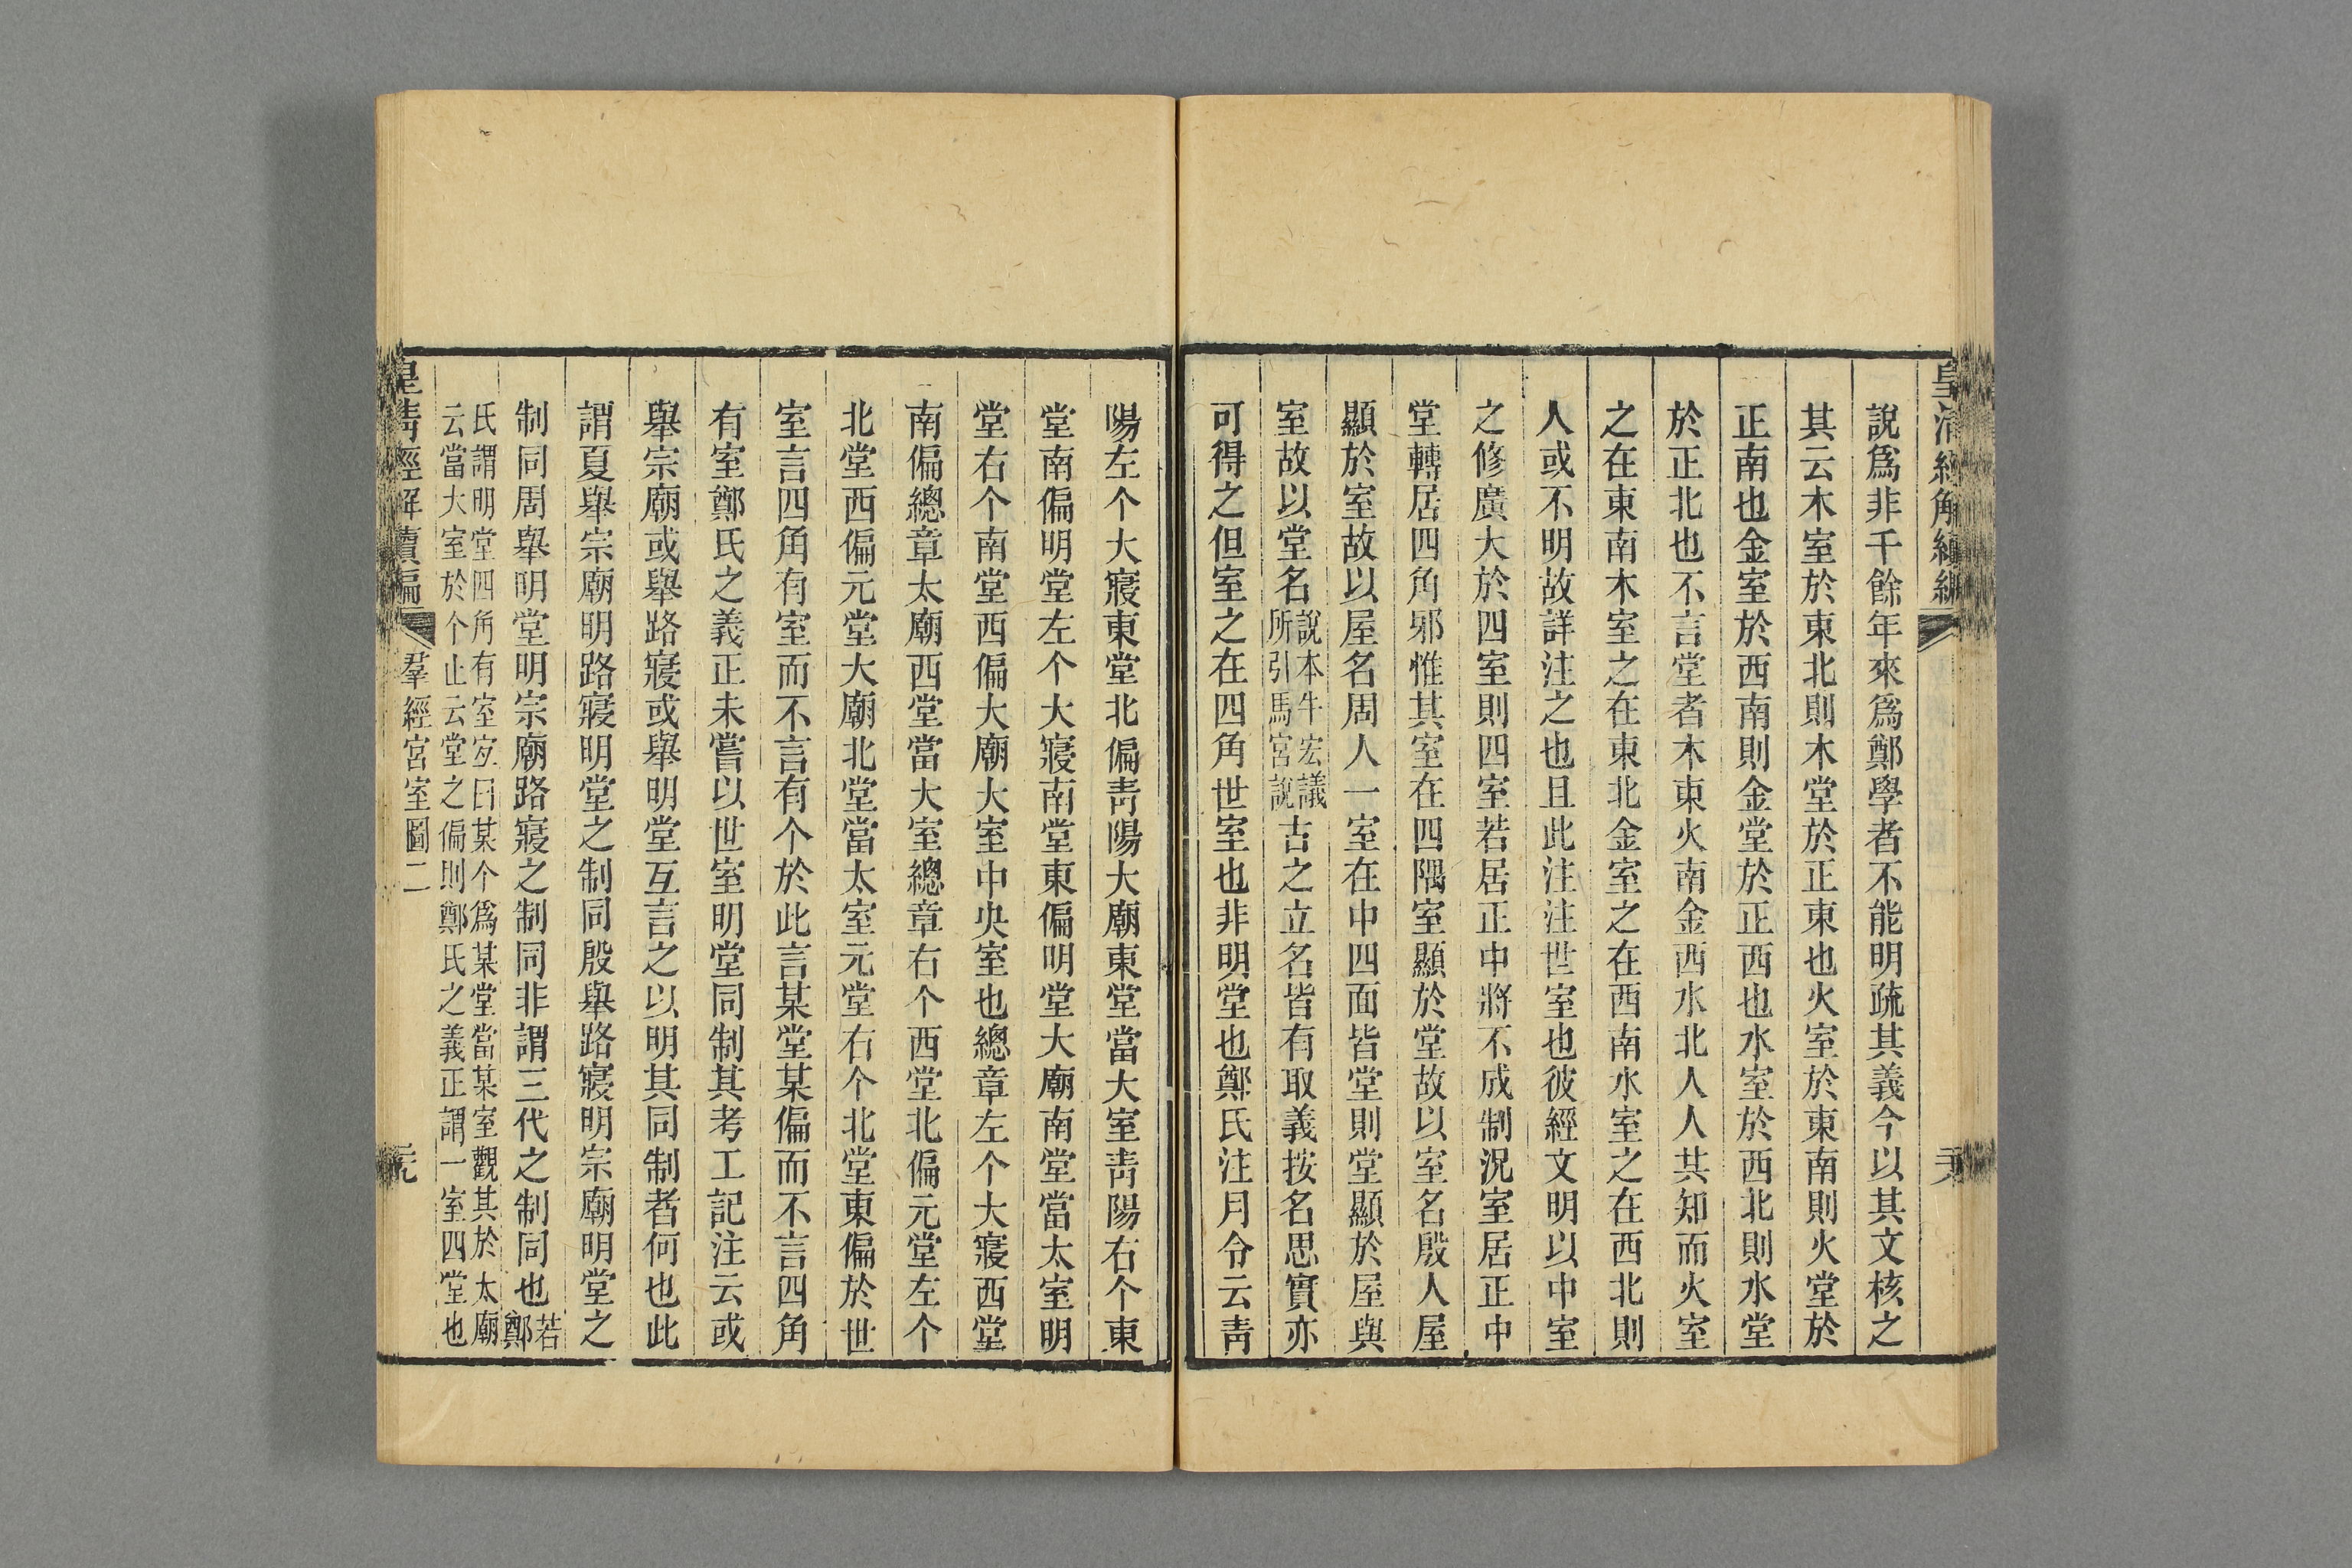 說爲非千餘年來爲鄭學者不能明疏其義今以其文核之
其云木室於東北則木堂於正東也火室於東南則火堂於
正南也金室於西南則金堂於正西也水室於西北則水堂
於正北也不言堂者木東火南金西水北人人共知而火室
之在東南木室之在東北金室之在西南水室之在西北則
人或不明故詳注之也且此注注世室也彼經文明以中室
之修廣大於四室則四室若居正中將不成制況室居正中
堂轉居四角邪惟其室在四隅室顯於堂故以室名殷人屋
顯於室故以屋名周人一室在中四面皆堂則堂顯於屋與
室故以堂名說本牛宏議所引馬宮說古之立名皆有取義按名思實亦
可得之但室之在四角世室也非明堂也鄭氏注月令云靑
陽左个大寢東堂北偏靑陽大廟東堂當大室靑陽右个東
堂南偏明堂左个大寢南堂東偏明堂大廟南堂當太室明
堂右个南堂西偏大廟大室中央室也總章左个大寢西堂
南偏總章太廟西堂當大室總章右个西堂北偏元堂左个
北堂西偏元堂大廟北堂當太室元堂右个北堂東偏於世
室言四角有室而不言有个於此言某堂某偏而不言四角
有室鄭氏之義正未嘗以世室明堂同制其考工記注云或
舉宗廟或舉路寢或舉明堂互言之以明其同制者何也此
謂夏舉宗廟明路寢明堂之制同殷舉路寢明宗廟明堂之
制同周舉明堂明宗廟路寢之制同非謂三代之制同也若鄭
氏謂明堂四角有室宐曰某个爲某堂當某室觀其於太廟
云當大室於个止云堂之偏則鄭氏之義正謂一室四堂也
皇淸經解續編
羣經宮室圖二